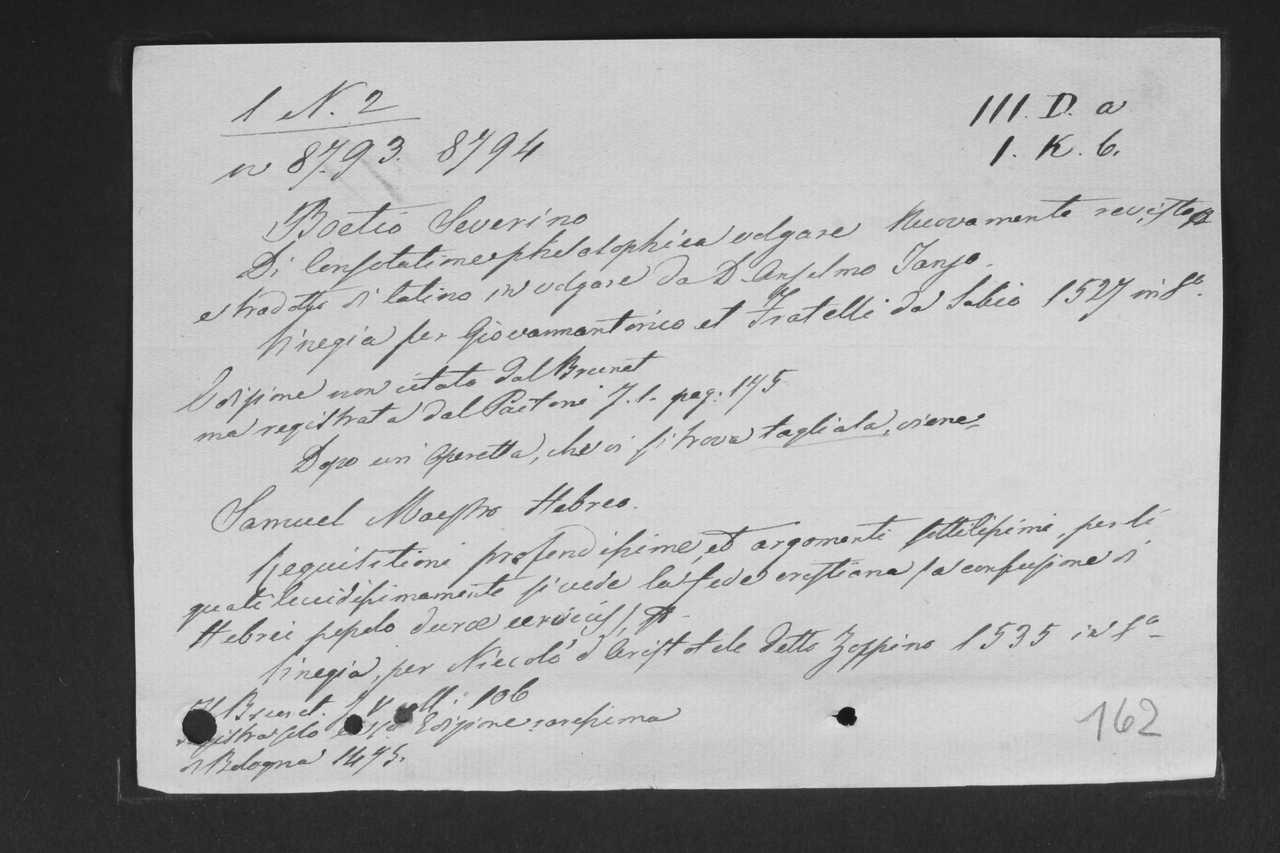 1 N. 2
n 8793. 8794
III. D. a
1. K. 6.
Boetio Severino
Di Consolatione philosophica volgare Nuovamente revista
e tradotto di latino in volgare da D. Anselmo Tanzo.
Vinegia per Giovannantonico et Fratelli da Sabio 1527 in 8º.
Edizione non citata dal Brunet
ma registrata dal Paitoni T. 1. pag: 175
Dopo un' Operetta, che vi si trova tagliata, viene:
Samuel Maestro Hebreo.
profondissime, et argomenti sottilissimi, per li
quali lucidissimamente si vede la fede cristiana la confusione di
Hebrei popolo duræ
Vinegia, per Niccolò d'Aristotele detto Zoppino 1535 in 8º
Il Brunet. 106
Edizione rarissima
di Bologna 1475.
162